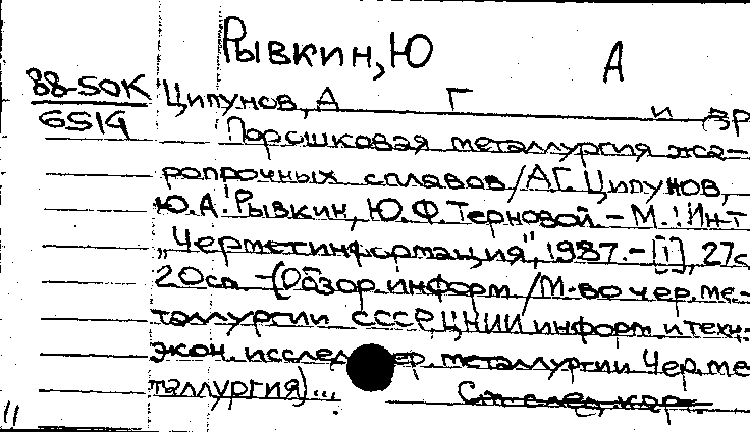 Рывкин, Ю А
88-50К Ципунов, А Г и др
6514
Порошковая металлургия жа-
ропрочных сплавов / А.Г. Ципунов,
Ю.А. Рывкин, Ю.Ф. Терновой. - М.: Ин-т
"Черметинформация", 1987. - [1], 27с
20см - (Обзор. информ. / М-во чер. ме-
таллургии СССР, ЦНИИ информ. и техн.-
экон. исслед. чер. металлургии Чер. ме
таллургия)...
См след. карт.
11